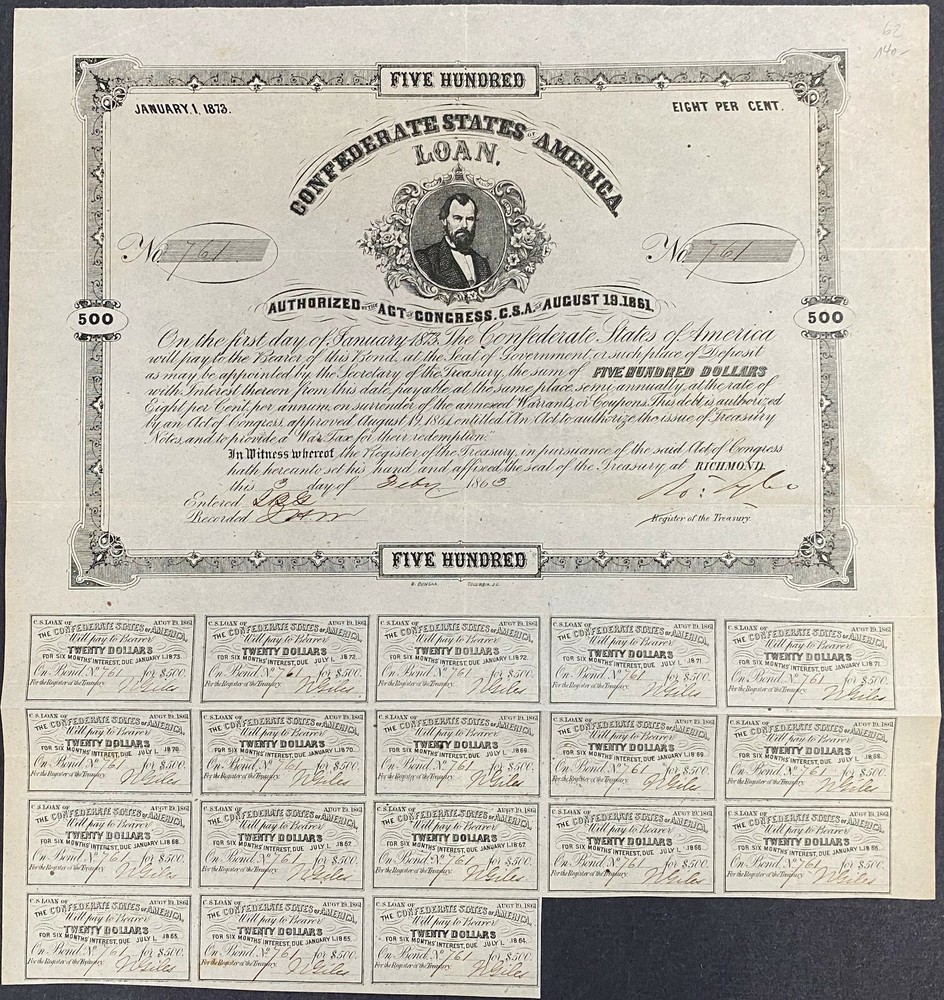 62
140-
FIVE HUNDRED
JANUARY, 1, 1873.
EIGHT PER CENT.
CONFEDERATE STATES OF AMERICA.
LOAN.
No 761
No 761
AUTHORIZED BY THE ACT OF CONGRESS. C.S.A. OF AUGUST 19. 1861.
500
500
On the first day of January 1873, The Confederate States of America
will pay to the Bearer of this Bond, at the Seat of Government, or such place of Deposit
as may be appointed by the Secretary of the Treasury, the sum of FIVE HUNDRED DOLLARS
with Interest thereon from this date, payable at the same place semi annually, at the rate of
Eight per Cent, per annum, on surrender of the annexed Warrants, or Coupons. This debt is authorized
by an Act of Congress, approved August 19, 1861, entitled "An Act to authorize the issue of Treasury
Notes, and to provide a War Tax for their redemption."
In Witness whereof the Register of the Treasury, in pursuance of the said Act of Congress
hath hereunto set his hand and affixed the seal of the Treasury at RICHMOND
this 3 day of Feby 1863
Entered
Recorded
Ro: Tyler
Register of the Treasury.
FIVE HUNDRED
COLUMBIA, S.C.
C.S. LOAN OF AUGT 19, 1861
THE CONFEDERATE STATES OF AMERICA,
Will pay to Bearer
TWENTY DOLLARS
FOR SIX MONTHS' INTEREST, DUE JANUARY 1, 1873.
On Bond No 761 for $500.
For the Register of the Treasury. N Giles
C.S. LOAN OF AUGT 19, 1861
THE CONFEDERATE STATES OF AMERICA,
Will pay to Bearer
TWENTY DOLLARS
FOR SIX MONTHS' INTEREST, DUE JULY 1, 1872.
On Bond No 761 for $500.
For the Register of the Treasury. N Giles
C.S. LOAN OF AUGT 19, 1861
THE CONFEDERATE STATES OF AMERICA,
Will pay to Bearer
TWENTY DOLLARS
FOR SIX MONTHS' INTEREST, DUE JANUARY 1, 1872.
On Bond No 761 for $500.
For the Register of the Treasury. N Giles
C.S. LOAN OF AUGT 19, 1861
THE CONFEDERATE STATES OF AMERICA,
Will pay to Bearer
TWENTY DOLLARS
FOR SIX MONTHS' INTEREST, DUE JULY 1, 1871.
On Bond No 761 for $500.
For the Register of the Treasury. N Giles
C.S. LOAN OF AUGT 19, 1861
THE CONFEDERATE STATES OF AMERICA,
Will pay to Bearer
TWENTY DOLLARS
FOR SIX MONTHS' INTEREST, DUE JANUARY 1, 1871.
On Bond No 761 for $500.
For the Register of the Treasury. N Giles
C.S. LOAN OF AUGT 19, 1861
THE CONFEDERATE STATES OF AMERICA,
Will pay to Bearer
TWENTY DOLLARS
FOR SIX MONTHS' INTEREST, DUE JULY 1, 1870.
On Bond No 761 for $500.
For the Register of the Treasury. N Giles
C.S. LOAN OF AUGT 19, 1861
THE CONFEDERATE STATES OF AMERICA,
Will pay to Bearer
TWENTY DOLLARS
FOR SIX MONTHS' INTEREST, DUE JANUARY 1, 1870.
On Bond No 761 for $500.
For the Register of the Treasury. N Giles
C.S. LOAN OF AUGT 19, 1861
THE CONFEDERATE STATES OF AMERICA,
Will pay to Bearer
TWENTY DOLLARS
FOR SIX MONTHS' INTEREST, DUE JULY 1, 1869.
On Bond No 761 for $500.
For the Register of the Treasury. N Giles
C.S. LOAN OF AUGT 19, 1861
THE CONFEDERATE STATES OF AMERICA,
Will pay to Bearer
TWENTY DOLLARS
FOR SIX MONTHS' INTEREST, DUE JANUARY 1, 1869.
On Bond No 761 for $500.
For the Register of the Treasury. N Giles
C.S. LOAN OF AUGT 19, 1861
THE CONFEDERATE STATES OF AMERICA,
Will pay to Bearer
TWENTY DOLLARS
FOR SIX MONTHS' INTEREST, DUE JULY 1, 1868.
On Bond No 761 for $500.
For the Register of the Treasury. N Giles
C.S. LOAN OF AUGT 19, 1861
THE CONFEDERATE STATES OF AMERICA,
Will pay to Bearer
TWENTY DOLLARS
FOR SIX MONTHS' INTEREST, DUE JANUARY 1, 1868.
On Bond No 761 for $500.
For the Register of the Treasury. N Giles
C.S. LOAN OF AUGT 19, 1861
THE CONFEDERATE STATES OF AMERICA,
Will pay to Bearer
TWENTY DOLLARS
FOR SIX MONTHS' INTEREST, DUE JULY 1, 1867.
On Bond No 761 for $500.
For the Register of the Treasury. N Giles
C.S. LOAN OF AUGT 19, 1861
THE CONFEDERATE STATES OF AMERICA,
Will pay to Bearer
TWENTY DOLLARS
FOR SIX MONTHS' INTEREST, DUE JANUARY 1, 1867.
On Bond No 761 for $500.
For the Register of the Treasury. N Giles
C.S. LOAN OF AUGT 19, 1861
THE CONFEDERATE STATES OF AMERICA,
Will pay to Bearer
TWENTY DOLLARS
FOR SIX MONTHS' INTEREST, DUE JULY 1, 1866.
On Bond No 761 for $500.
For the Register of the Treasury. N Giles
C.S. LOAN OF AUGT 19, 1861
THE CONFEDERATE STATES OF AMERICA,
Will pay to Bearer
TWENTY DOLLARS
FOR SIX MONTHS' INTEREST, DUE JANUARY 1, 1866.
On Bond No 761 for $500.
For the Register of the Treasury. N Giles
C.S. LOAN OF AUGT 19, 1861
THE CONFEDERATE STATES OF AMERICA,
Will pay to Bearer
TWENTY DOLLARS
FOR SIX MONTHS' INTEREST, DUE JULY 1, 1865.
On Bond No 761 for $500.
For the Register of the Treasury. N Giles
C.S. LOAN OF AUGT 19, 1861
THE CONFEDERATE STATES OF AMERICA,
Will pay to Bearer
TWENTY DOLLARS
FOR SIX MONTHS' INTEREST, DUE JANUARY 1, 1865.
On Bond No 761 for $500.
For the Register of the Treasury. N Giles
C.S. LOAN OF AUGT 19, 1861
THE CONFEDERATE STATES OF AMERICA,
Will pay to Bearer
TWENTY DOLLARS
FOR SIX MONTHS' INTEREST, DUE JULY 1, 1864.
On Bond No 761 for $500.
For the Register of the Treasury. N Giles